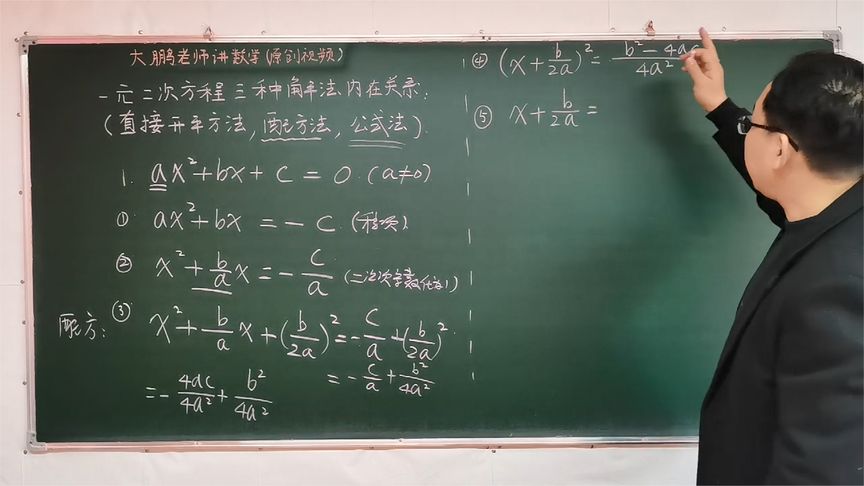 大鹏老师讲数学(原创视频)
一元二次方程三种解法内在关系:
(直接开平方法,配方法,公式法).
1. ax²+bx+c=0.(a≠0)
① ax²+bx=-c.(移项)
② x²+b/a x=-c/a (二次项系数化为1)
配方: ③ x²+b/a x+(b/2a)²=-c/a+(b/2a)².
=-c/a+b²/4a²
=-4ac/4a²+b²/4a²
④ (x+b/2a)²=b²-4ac/4a²
⑤ x+b/2a=